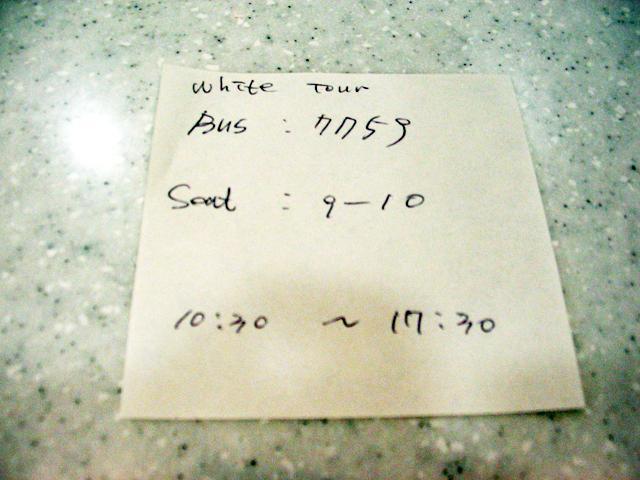 White Tour
Bus : 7759
Seat : 9-10
10:30 ~ 17:30